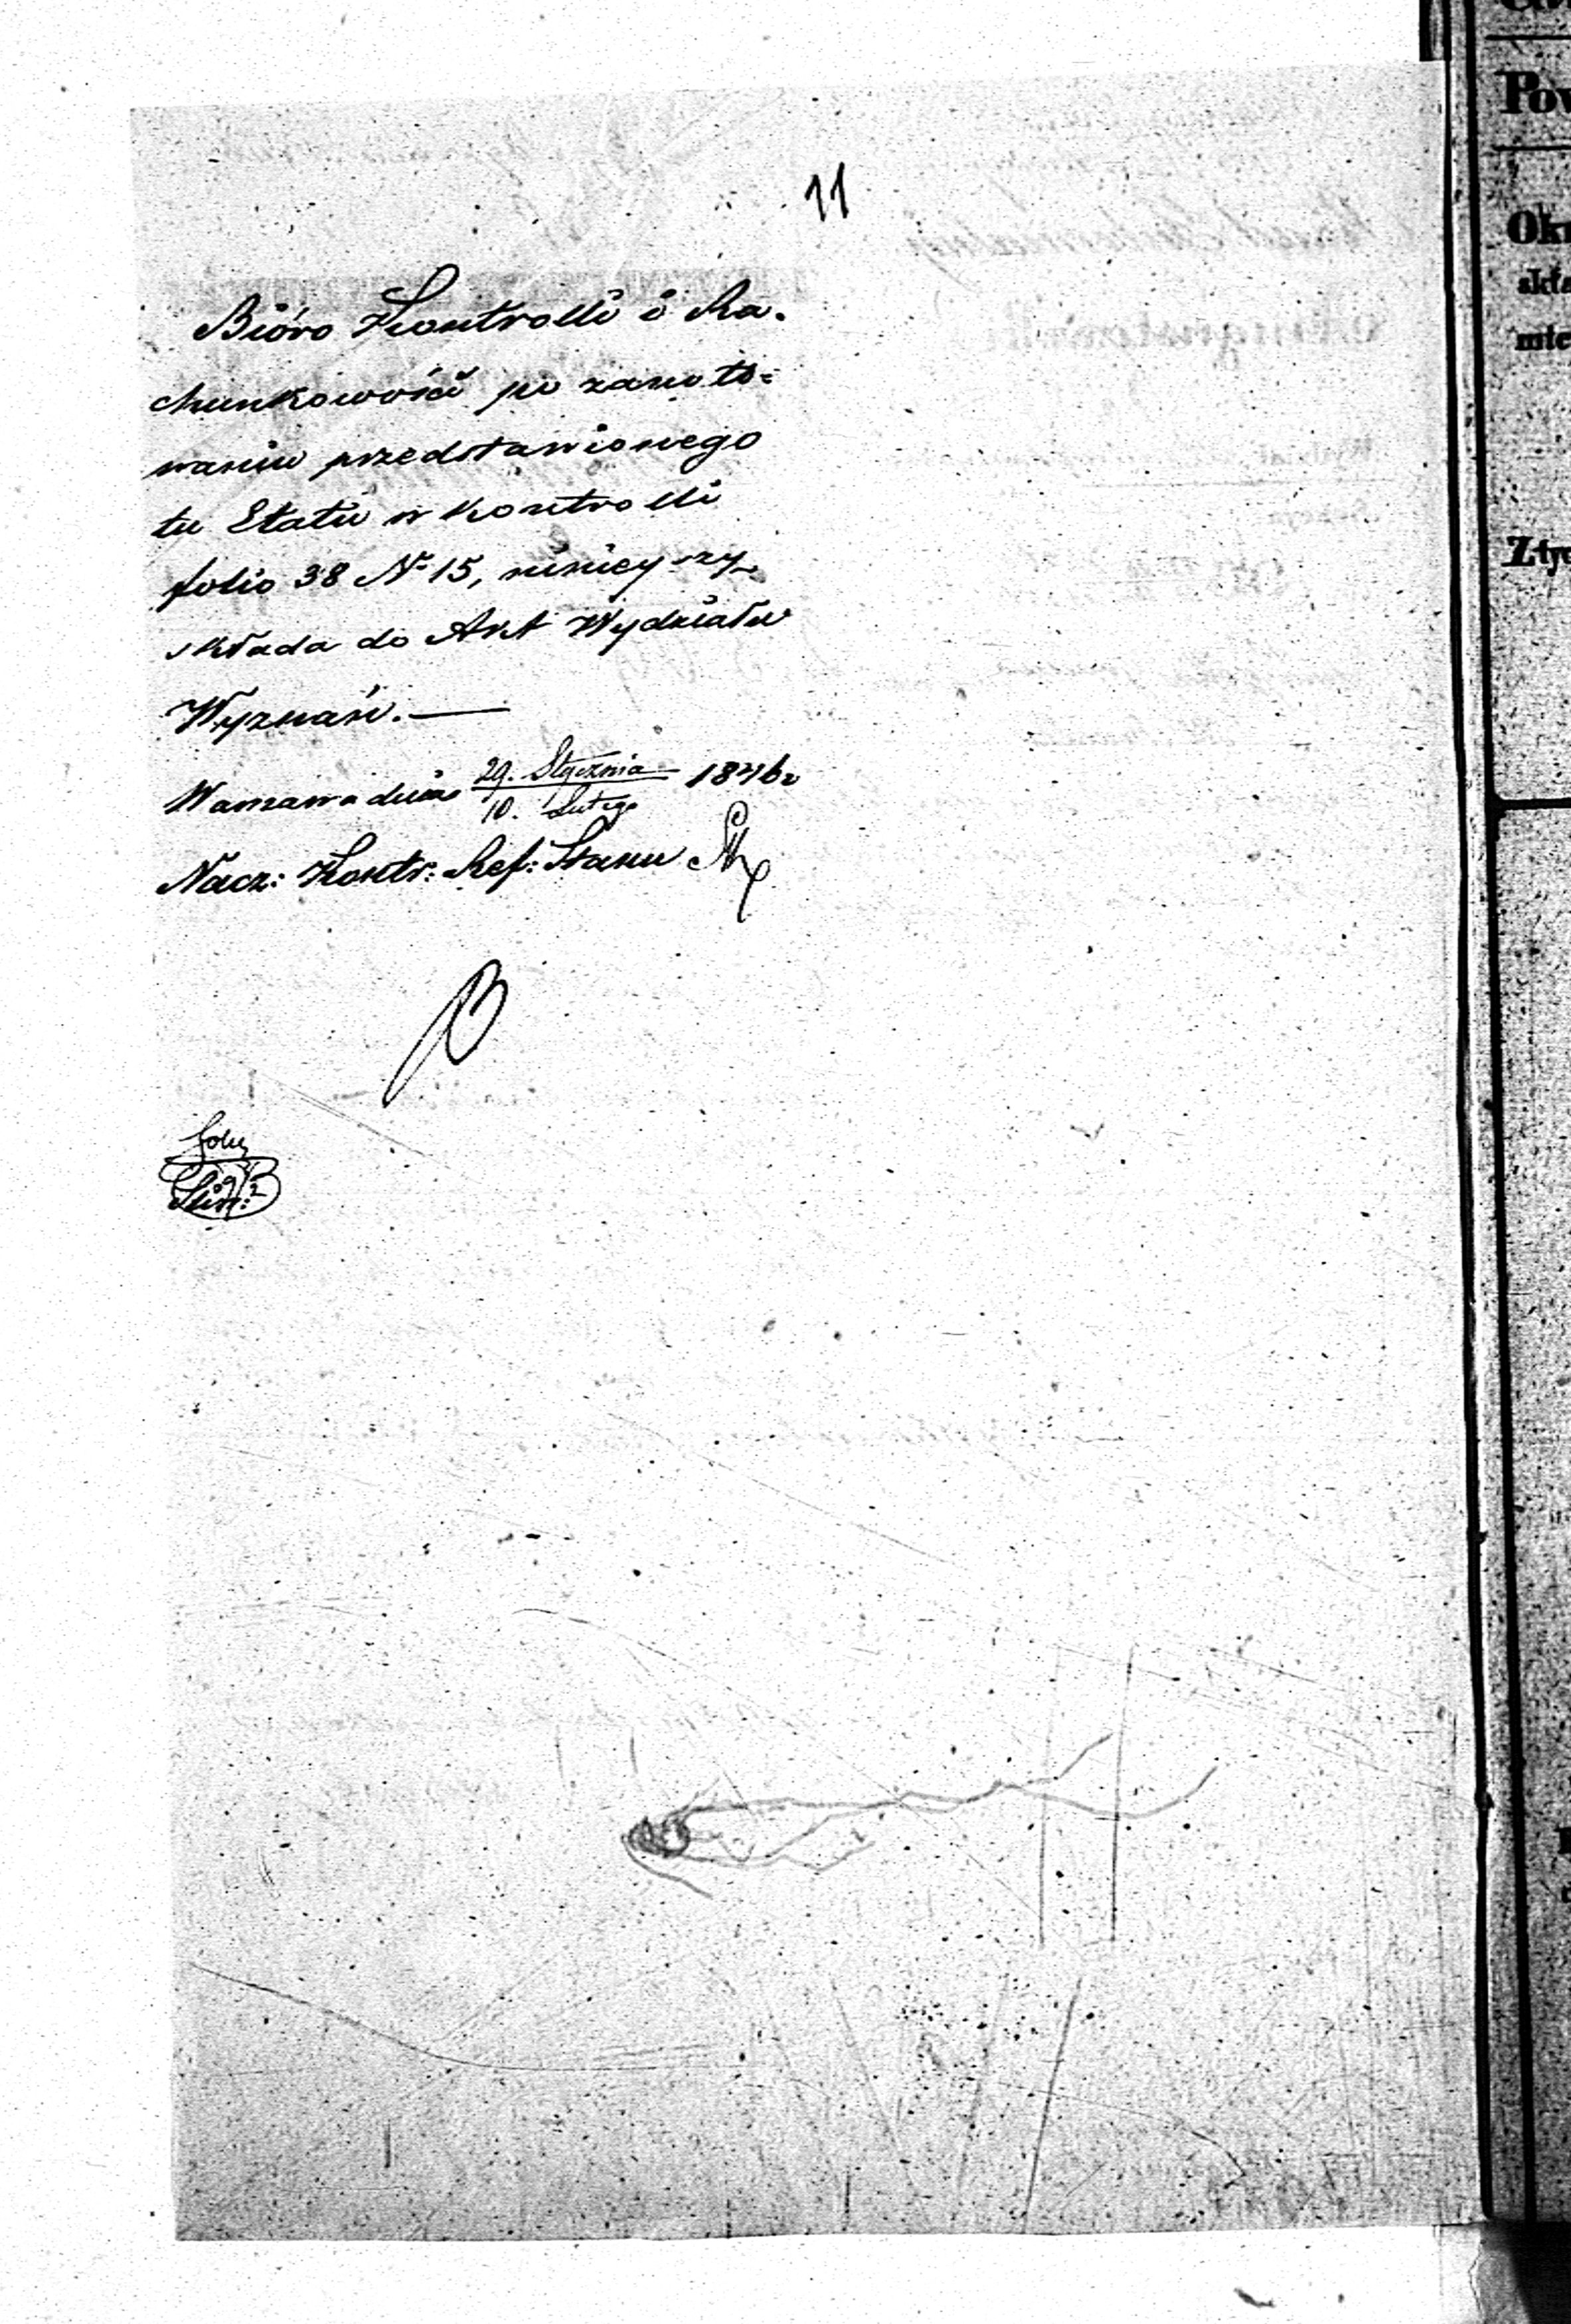 11
Bióro Kontrolli i Ra-
chunkowości po zanoto=
waniu przedstawionego
tu Etatu w kontrolli
folio 38 No 15, niniejszy
składa do Akt Wydziału
Wyznań. —
Warszawa dnia 29. Stycznia / 10. Lutego 1846 r
Nacz: Kontr: Ref: Stanu
Pow
Okr
skła
mie
Z tyc